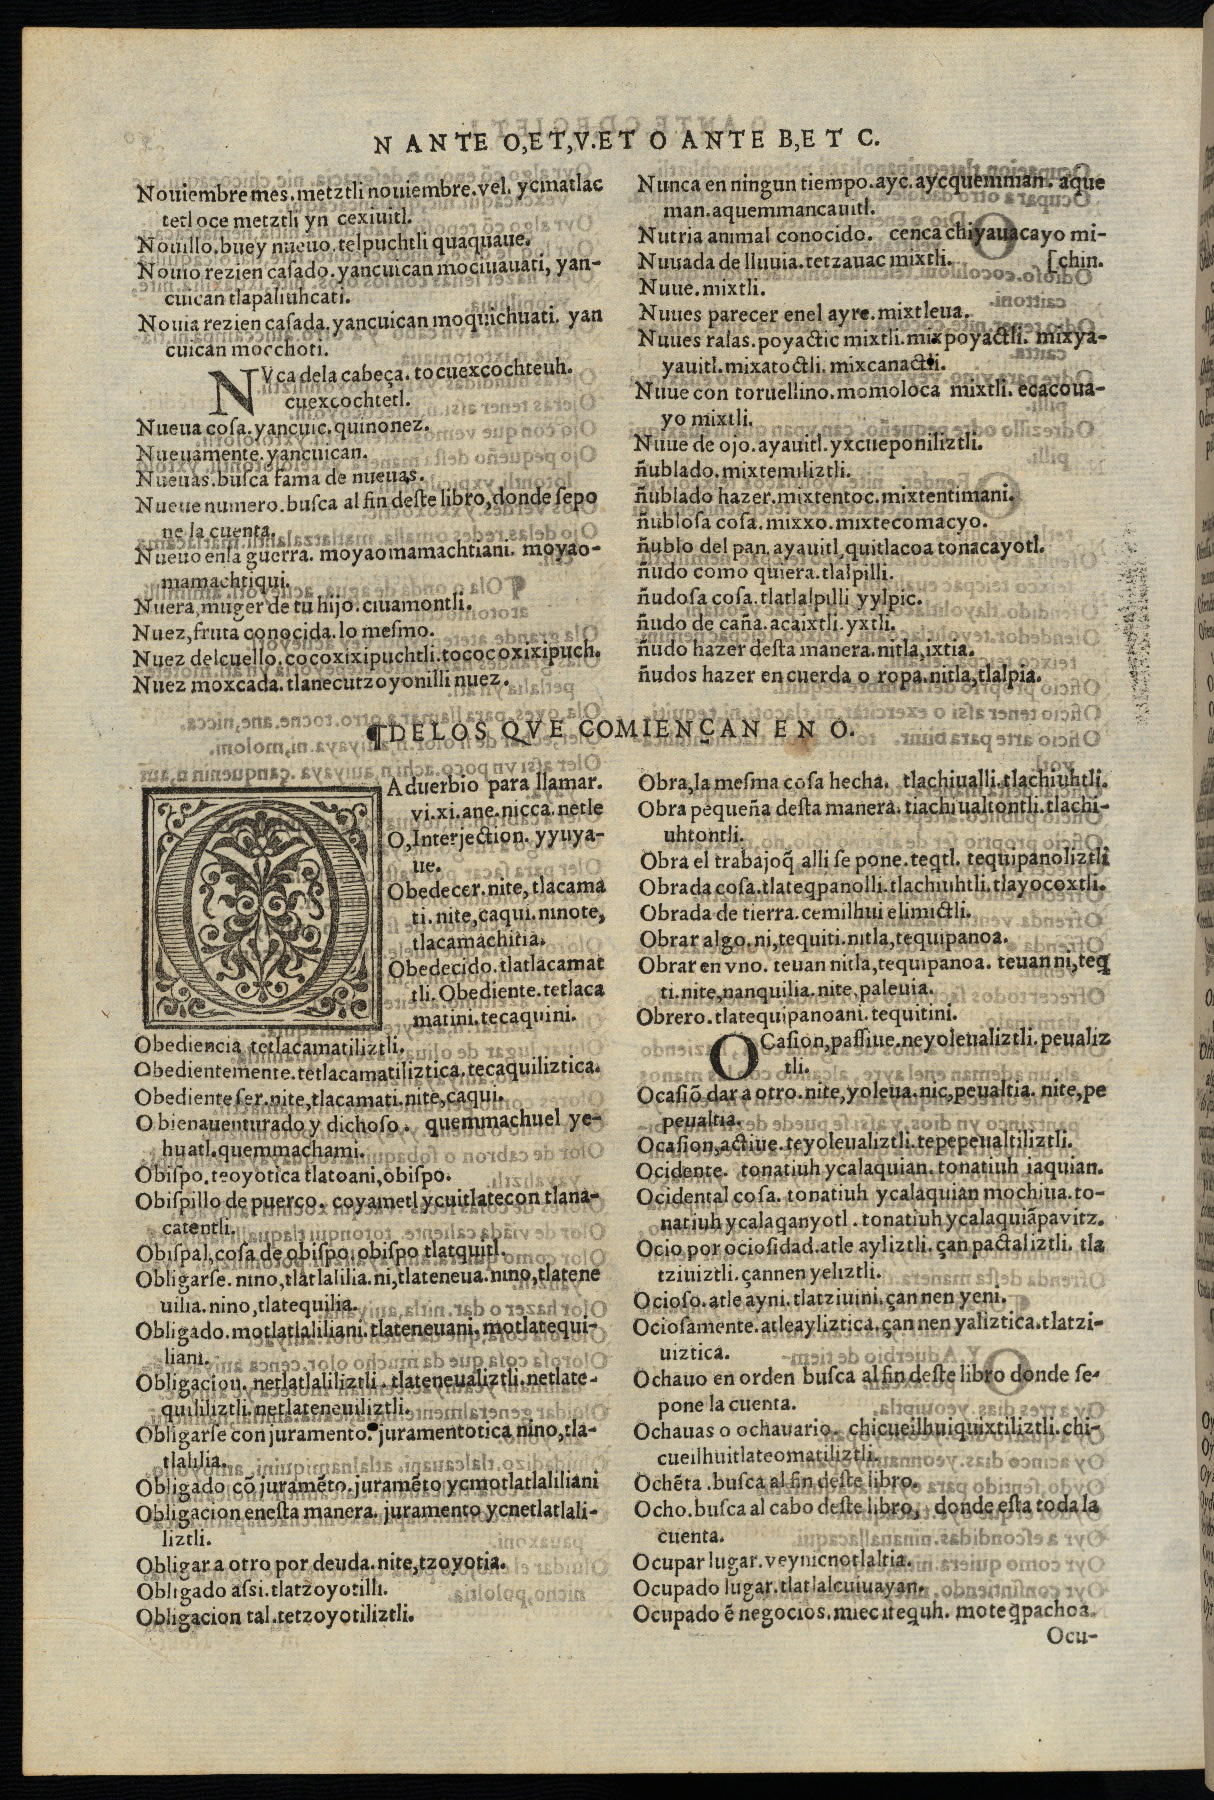 N ANTE O,ET,V.ET O ANTE B,ET C.
Nouiembre mes. metztli nouiembre. vel. ycmatlac
tetl oce metztli yn cexiuitl.
Nouillo. buey nueuo. telpuchtli quaquaue.
Nouio rezien casado. yancuican mociuauati, yan-
cuican tlapaliuhcati.
Nouia rezien casada. yancuican moquichuati. yan
cuican mocchoti.
NVca dela cabeça. tocuexcochteuh.
cuexcochtetl.
Nueua cosa. yancuic. quinonez.
Nueuamente. yancuican.
Nueuas. busca fama de nueuas.
Nueue numero. busca al fin deste libro, donde sepo
ne la cuenta.
Nueuo enla guerra. moyaomamachtiani. moyao-
mamachtiqui.
Nuera, muger de tu hijo. ciuamontli.
Nuez, fruta conocida. lo mesmo.
Nuez delcuello. cocoxixipuchtli. tococoxixipuch.
Nuez moxcada. tlanecutzoyonilli nuez.
Nunca en ningun tiempo. ayc. aycquemman. aque
man. aquemmancauitl.
Nutria animal conocido. cenca chiyauacayo mi-
Nuuada de lluuia. tetzauac mixtli. [chin.
Nuue. mixtli.
Nuues parecer enel ayre. mixtleua.
Nuues ralas. poyactic mixtli. mixpoyactli. mixya-
yauitl. mixatoctli. mixcanactli.
Nuue con toruellino. momoloca mixtli. ecacoua-
yo mixtli.
Nuue de ojo. ayauitl. yxcueponiliztli.
ñublado. mixtemiliztli.
ñublado hazer. mixtentoc. mixtentimani.
ñublosa cosa. mixxo. mixtecomacyo.
ñublo del pan. ayauitl quitlacoa tonacayotl.
ñudo como quiera. tlalpilli.
ñudosa cosa. tlatlalpilli yylpic.
ñudo de caña. acaixtli. yxtli.
ñudo hazer desta manera. nitla, ixtia.
ñudos hazer en cuerda o ropa. nitla, tlalpia.
¶DELOS QVE COMIENÇAN EN O.
O Aduerbio para llamar.
vi. xi. ane. nicca. netle
O, Interjection. yyuya-
ue.
Obedecer. nite, tlacama
ti. nite, caqui. ninote,
tlacamachitia.
Obedecido. tlatlacamat
tli. Obediente. tetlaca
matini. tecaquini.
Obediencia tetlacamatiliztli.
Obedientemente. tetlacamatiliztica. tecaquiliztica.
Obediente ser. nite, tlacamati. nite, caqui.
O bienauenturado y dichoso. quemmachuel ye-
huatl. quemmachami.
Obispo. teoyotica tlatoani, obispo.
Obispillo de puerco. coyametl ycuitlatecon tlana-
catentli.
Obispal, cosa de obispo. obispo tlatquitl.
Obligarse. nino, tlatlalilia. ni, tlateneua. nino, tlatene
uilia. nino, tlatequilia.
Obligado. motlatlaliliani. tlateneuani. motlatequi-
liani.
Obligacion. netlatlaliliztli. tlateneualiztli. netlate-
quililiztli. netlateneuiliztli.
Obligarse con juramento. juramentotica nino, tla-
tlalilia.
Obligado cõ juramẽto. juramẽto ycmotlatlaliliani
Obligacion enesta manera. juramento ycnetlatlali-
liztli.
Obligar a otro por deuda. nite, tzoyotia.
Obligado assi. tlatzoyotilli.
Obligacion tal. tetzoyotiliztli.
Obra, la mesma cosa hecha. tlachiualli. tlachiuhtli.
Obra pequeña desta manera. tlachiualtontli. tlachi-
uhtontli.
Obra el trabajo q̃ alli se pone. teq̃tl. tequipanoliztli
Obrada cosa. tlateq̃panolli. tlachiuhtli. tlayocoxtli.
Obrada de tierra. cemilhui elimictli.
Obrar algo. ni, tequiti. nitla, tequipanoa.
Obrar en vno. teuan nitla, tequipanoa. teuan ni, teq̃
ti. nite, nanquilia. nite, paleuia.
Obrero. tlatequipanoani. tequitini.
OCasion, passiue. neyoleualiztli. peualiz
tli.
Ocasiõ dar a otro. nite, yoleua. nic, peualtia. nite, pe
peualtia.
Ocasion, actiue. teyoleualiztli. tepepeualtiliztli.
Ocidente. tonatiuh ycalaquian. tonatiuh iaquian.
Ocidental cosa. tonatiuh ycalaquian mochiua. to-
natiuh ycalaqanyotl. tonatiuh ycalaquiãpavitz.
Ocio por ociosidad. atle ayliztli. çan pactaliztli. tla
tziuiztli. çannen yeliztli.
Ocioso. atle ayni. tlatziuini. çan nen yeni.
Ociosamente. atleayliztica. çan nen yaliztica. tlatzi-
uiztica.
Ochauo en orden busca al fin deste libro donde se-
pone la cuenta.
Ochauas o ochauario. chicueilhuiquixtiliztli. chi-
cueilhuitlateomatiliztli.
Ochẽta. busca al fin deste libro.
Ocho. busca al cabo deste libro, donde esta toda la
cuenta.
Ocupar lugar. veynicnotlaltia.
Ocupado lugar. tlatlalcuiuayan.
Ocupado ẽ negocios. miec itequh. moteq̃pachoa.
Ocu-